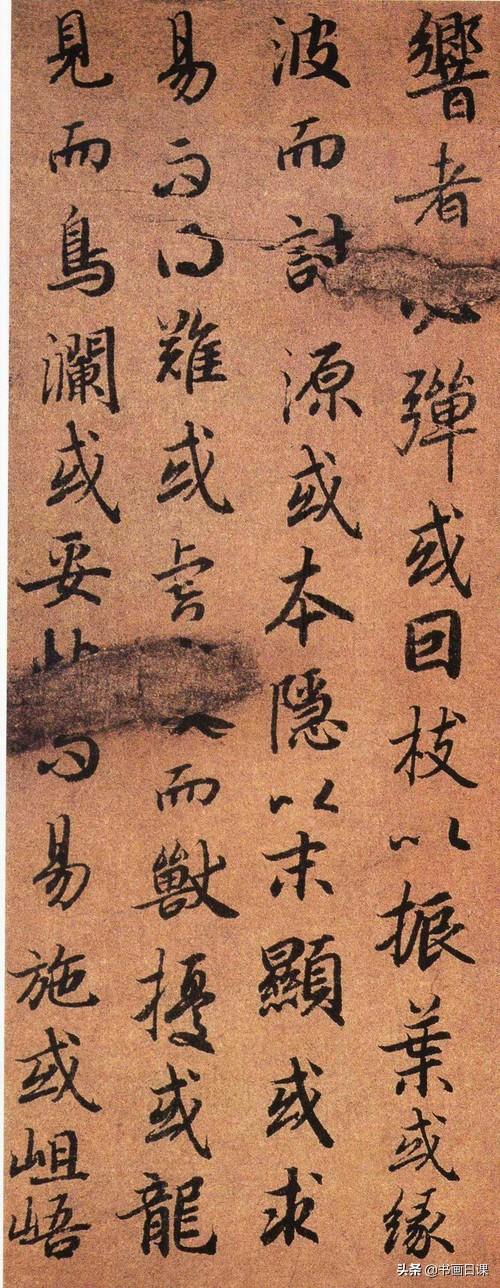 響者彈或因枝以振葉或緣
波而討源或本隱以末顯或求
易而得難或虎而獸擾或龍
見而鳥瀾或妥而易施或岨峿
头条 @书画日课